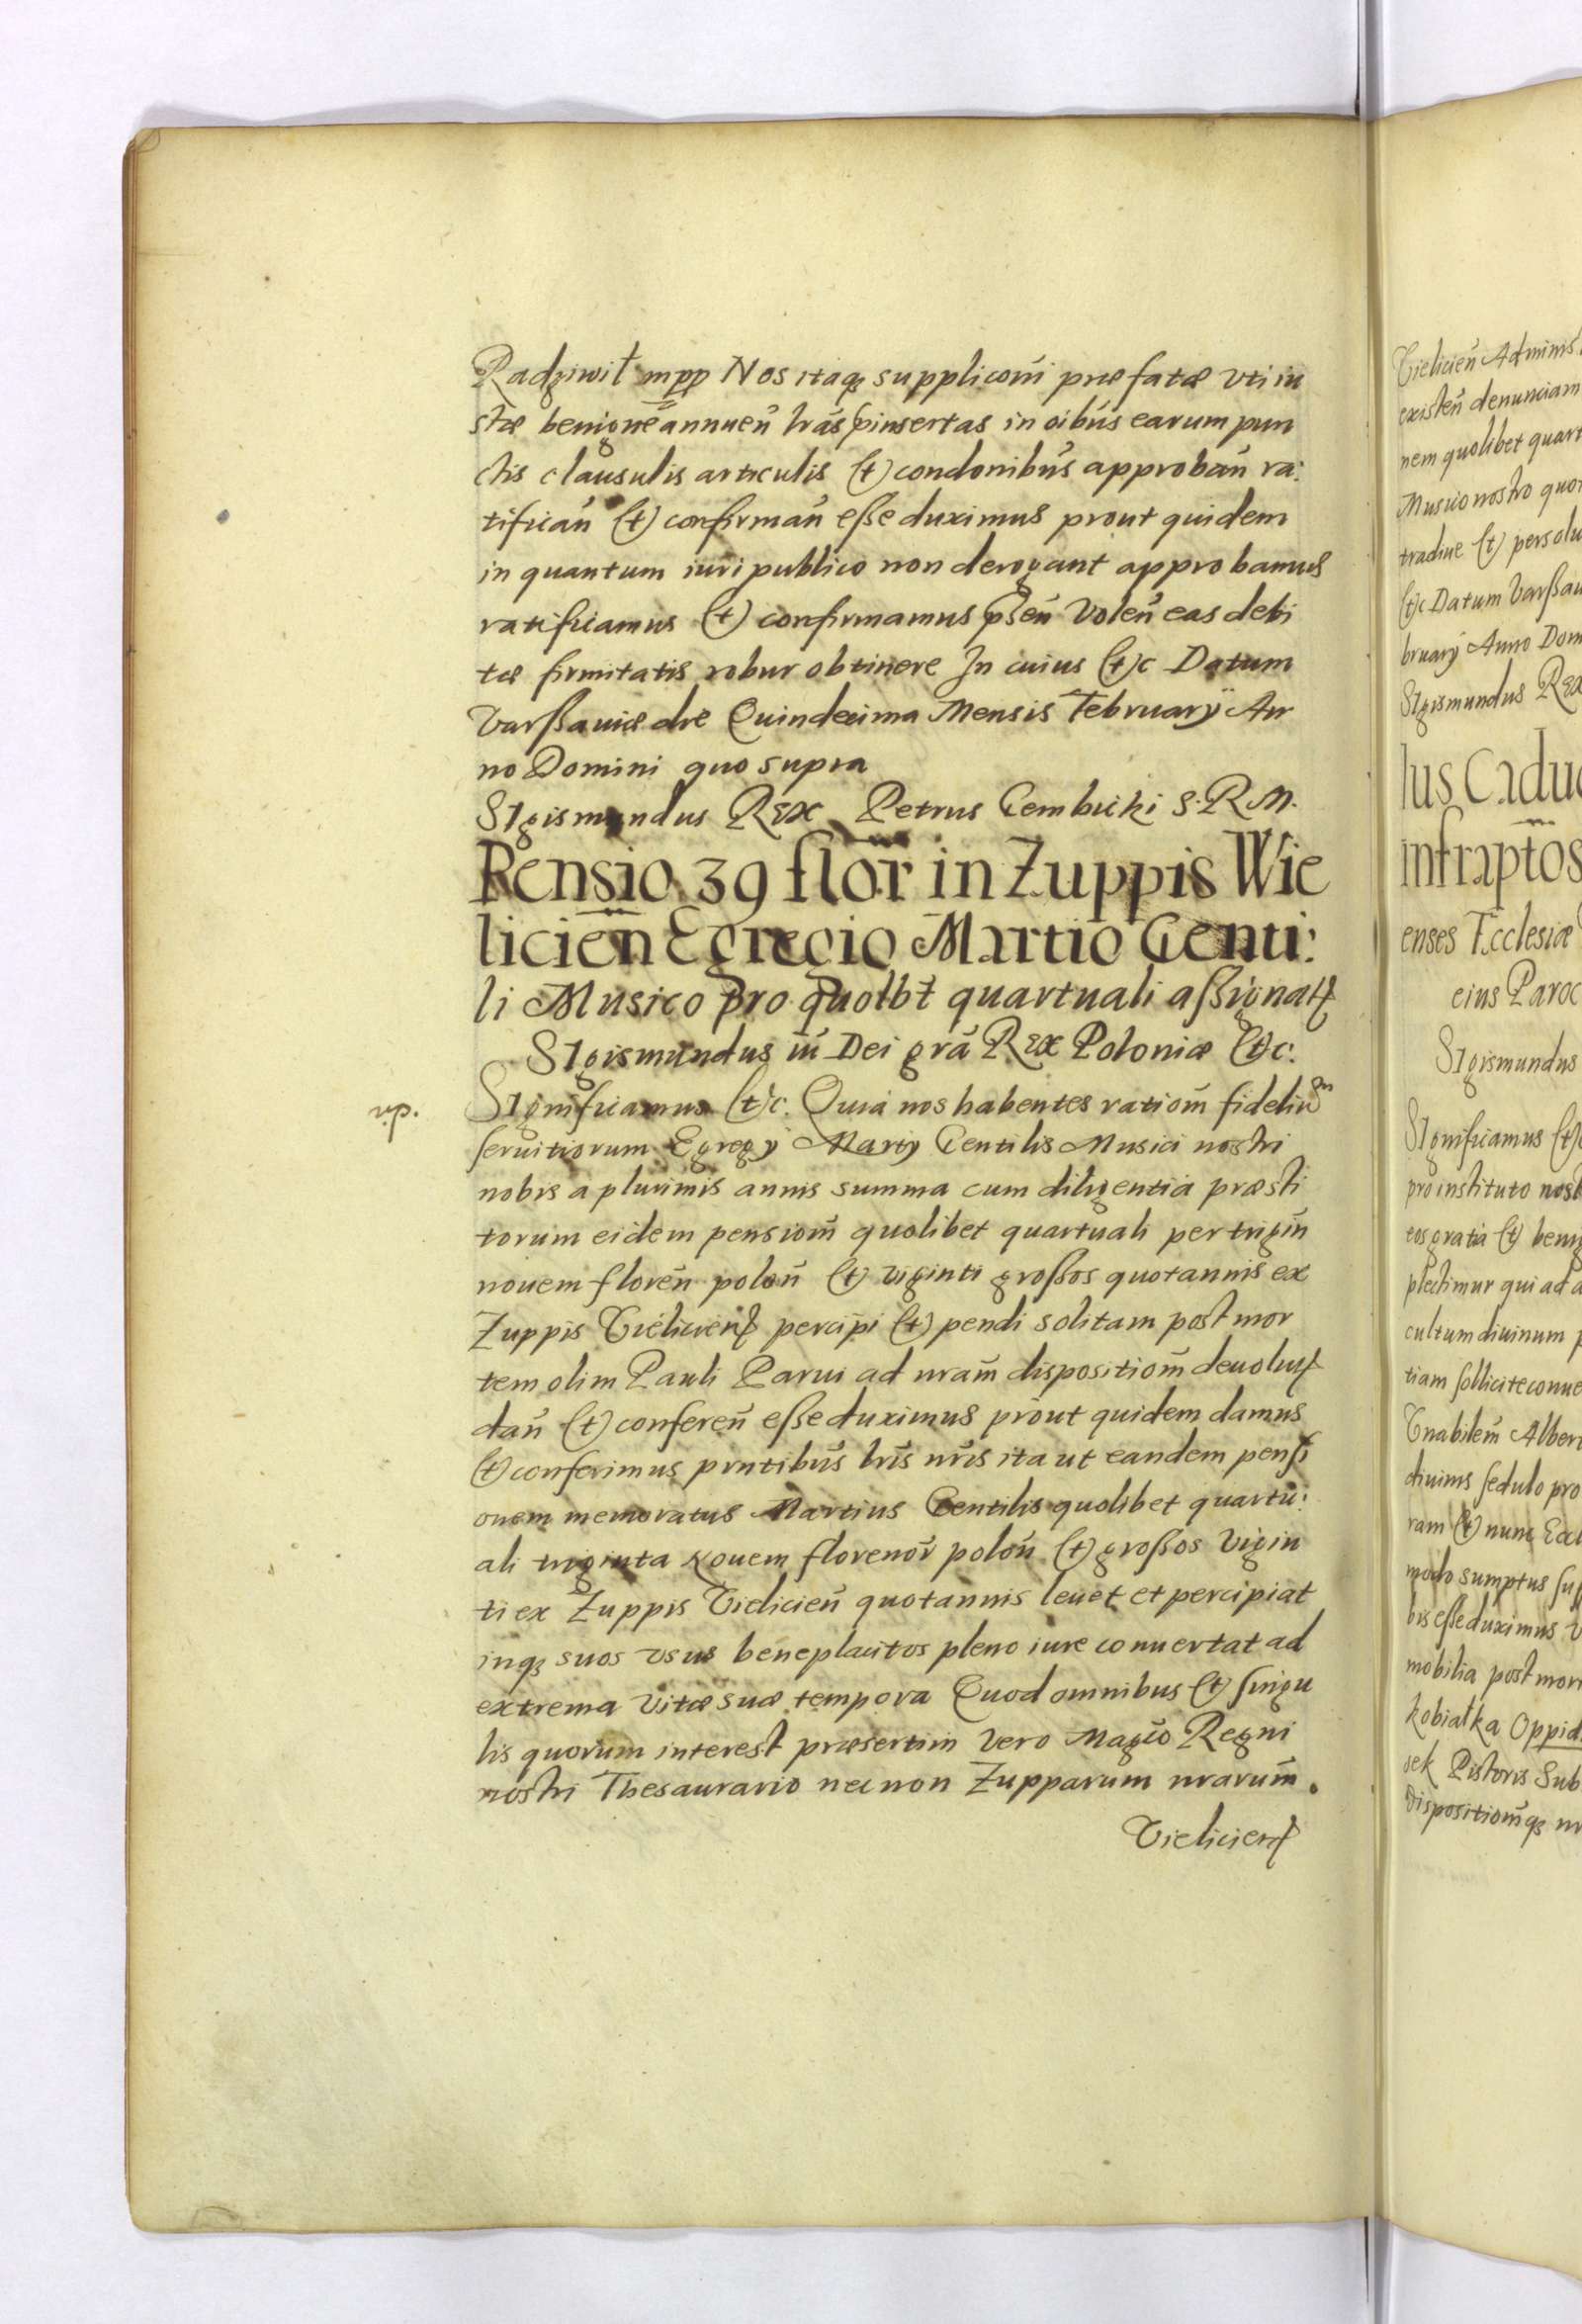 Radziwił mpp Nos itaq₃ suppliconi præfatæ vti iu
stæ benigne annuen̄ lr̄as p̄insertas in oībus earum pun
ctis clausulis articulis (t) condonibus approban̄ ra:
tifican̄ (t) confirman̄ esse duximus prout quidem
in quantum iuri publico non derogant approbamus
ratificamus (t) confirmamus p̄sen̄ Volen̄ eas debi
tæ firmitatis robur obtinere In cuius (t)c Datum
Varssauiæ die Quindecima Mensis February An
no Domini quo supra
SIgismundus REx Petrus Gembicki S. R M.
Pensio 39 flor̄ in Zuppis Wie
licien̄ Egregio Martio Genti:
li Musico pro quolbt quartuali assignatr
SIgismundus iii Dei grā REx Poloniæ (t)c:
rip.
SIgnificamus (t)c. Quia nos habentes ratiom̄ fideliū
seruitiorum Egregÿ Martÿ Gentilis Musici nostri
nobis a plurimis annis summa cum diligentia præsti
torum eidem pensiom̄ quolibet quartuali per trigin̄
nouem floren̄ polon̄ (t) viginti grossos quotannis ex
Zuppis Vieliciens percipi (t) pendi solitam post mor
tem olim Pauli Parui ad nram̄ dispositiom̄ deuolut
dan̄ (t) conferen̄ esse duximus prout quidem damus
(t) conferimus prntibus lris nris ita ut eandem pensi
onem memoratus Martius Gentilis quolibet quartu:
ali triginta Nouem florenor̄ polon̄ (t) grossos Vigin
ti ex Zuppis Vielicien̄ quotannis leuet et percipiat
inq₃ suos vsus beneplacitos pleno iure conuertat ad
extrema Vitæ suæ tempora Quod omnibus (t) singu
lis quorum interest præsertim Vero Magco Regni
nostri Thesaurario nec non Zupparum nrarum̄.
Vieliciens
Vielicien̄ Adminis
existen̄ denunciam
nem quolibet quart
Musico nostro quo
tradine (t) persolu
(t)c Datum Varssau
bruarÿ Anno Dom
SIgismundus REx
Ius Caduc
infraptos
enses Ecclesiæ
eius Paroc
SIgismundus
SIgnificamus (t)
pro instituto nost
eos gratia (t) benig
plectimur qui ad a
cultum diuinum p
tiam sollicite conue
Vnabilem̄ Alber
diuinis sedulo pro
ram (t) nunc Eccl
modo sumptus suf
bis esse duximus v
mobilia post mor
kobiałka Oppid
sek Pistoris Sub
dispositiom̄q₃ nr